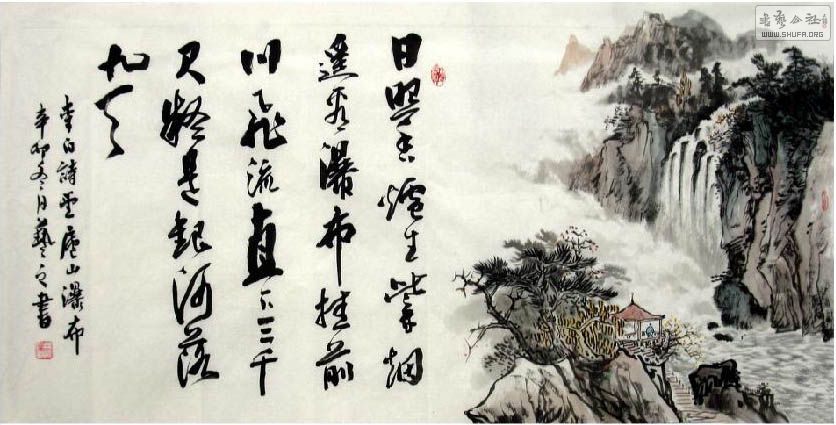 日照香爐生紫烟
遥看瀑布挂前
川飛流直下三千
尺疑是銀河落
九天
李白詩望廬山瀑布
辛卯冬月藝之書
书艺公社
WWW.SHUFA.ORG